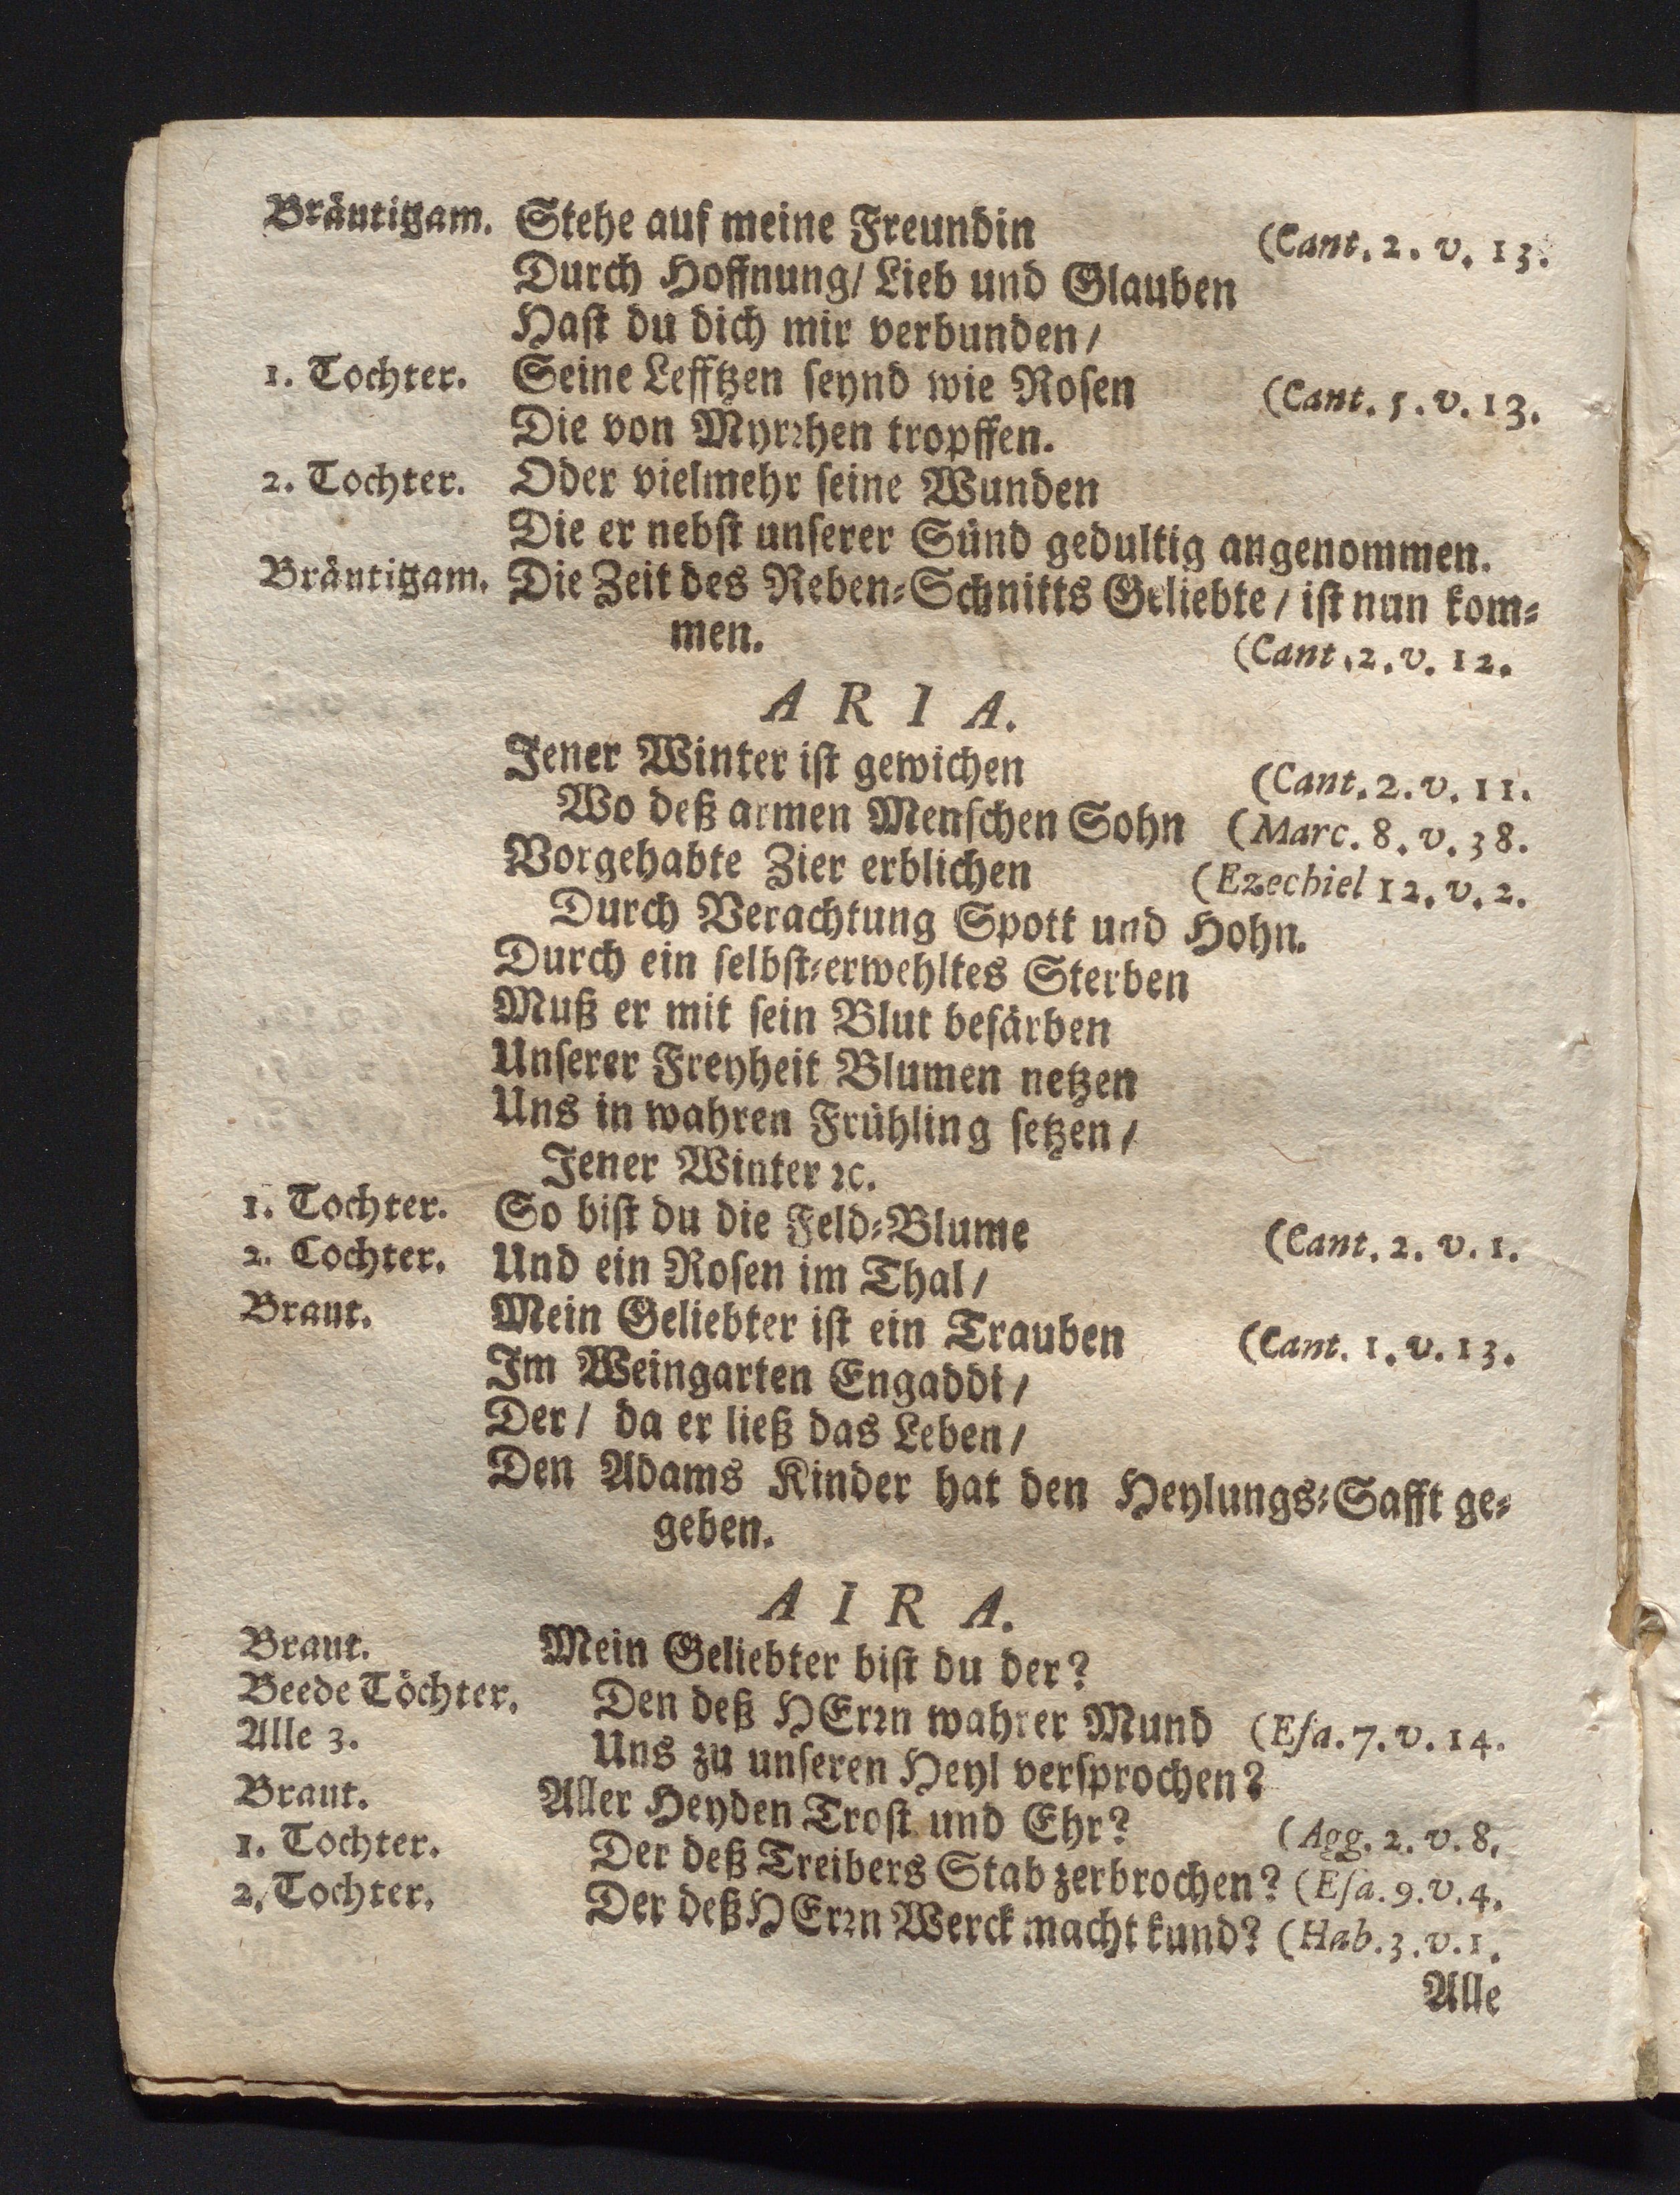 Bräutigam. Stehe auf meine Freundin (Cant. 2. v. 13.
Durch Hoffnung/ Lieb und Glauben
Hast du dich mir verbunden/
1. Tochter. Seine Lefftzen seynd wie Rosen (Cant. 5. v. 13.
Die von Myrrhen tropffen.
2. Tochter. Oder vielmehr seine Wunden
Die er nebst unserer Sünd gedultig angenommen.
Bräutigam. Die Zeit des Reben-Schnitts Geliebte/ ist nun kom-
men. (Cant. 2. v. 12.
ARIA.
Jener Winter ist gewichen (Cant. 2. v. 11.
Wo deß armen Menschen Sohn (Marc. 8. v. 38.
Vorgehabte Zier erblichen (Ezechiel 12. v. 2.
Durch Verachtung Spott und Hohn.
Durch ein selbst-erwehltes Sterben
Muß er mit sein Blut befärben
Unserer Freyheit Blumen netzen
Uns in wahren Frühling setzen/
Jener Winter ꝛc.
1. Tochter. So bist du die Feld-Blume (Cant. 2. v. 1.
2. Tochter. Und ein Rosen im Thal/
Braut. Mein Geliebter ist ein Trauben (Cant. 1. v. 13.
Im Weingarten Engaddi/
Der/ da er ließ das Leben/
Den Adams Kinder hat den Heylungs-Safft ge-
geben.
AIRA.
Braut. Mein Geliebter bist du der?
Beede Töchter. Den deß HErrn wahrer Mund (Esa. 7. v. 14.
Alle 3. Uns zu unseren Heyl versprochen?
Braut. Aller Heyden Trost und Ehr? (Agg. 2. v. 8.
1. Tochter. Der deß Treibers Stab zerbrochen? (Esa. 9. v. 4.
2. Tochter. Der deß HErrn Werck macht kund? (Hab. 3. v. 1.
Alle